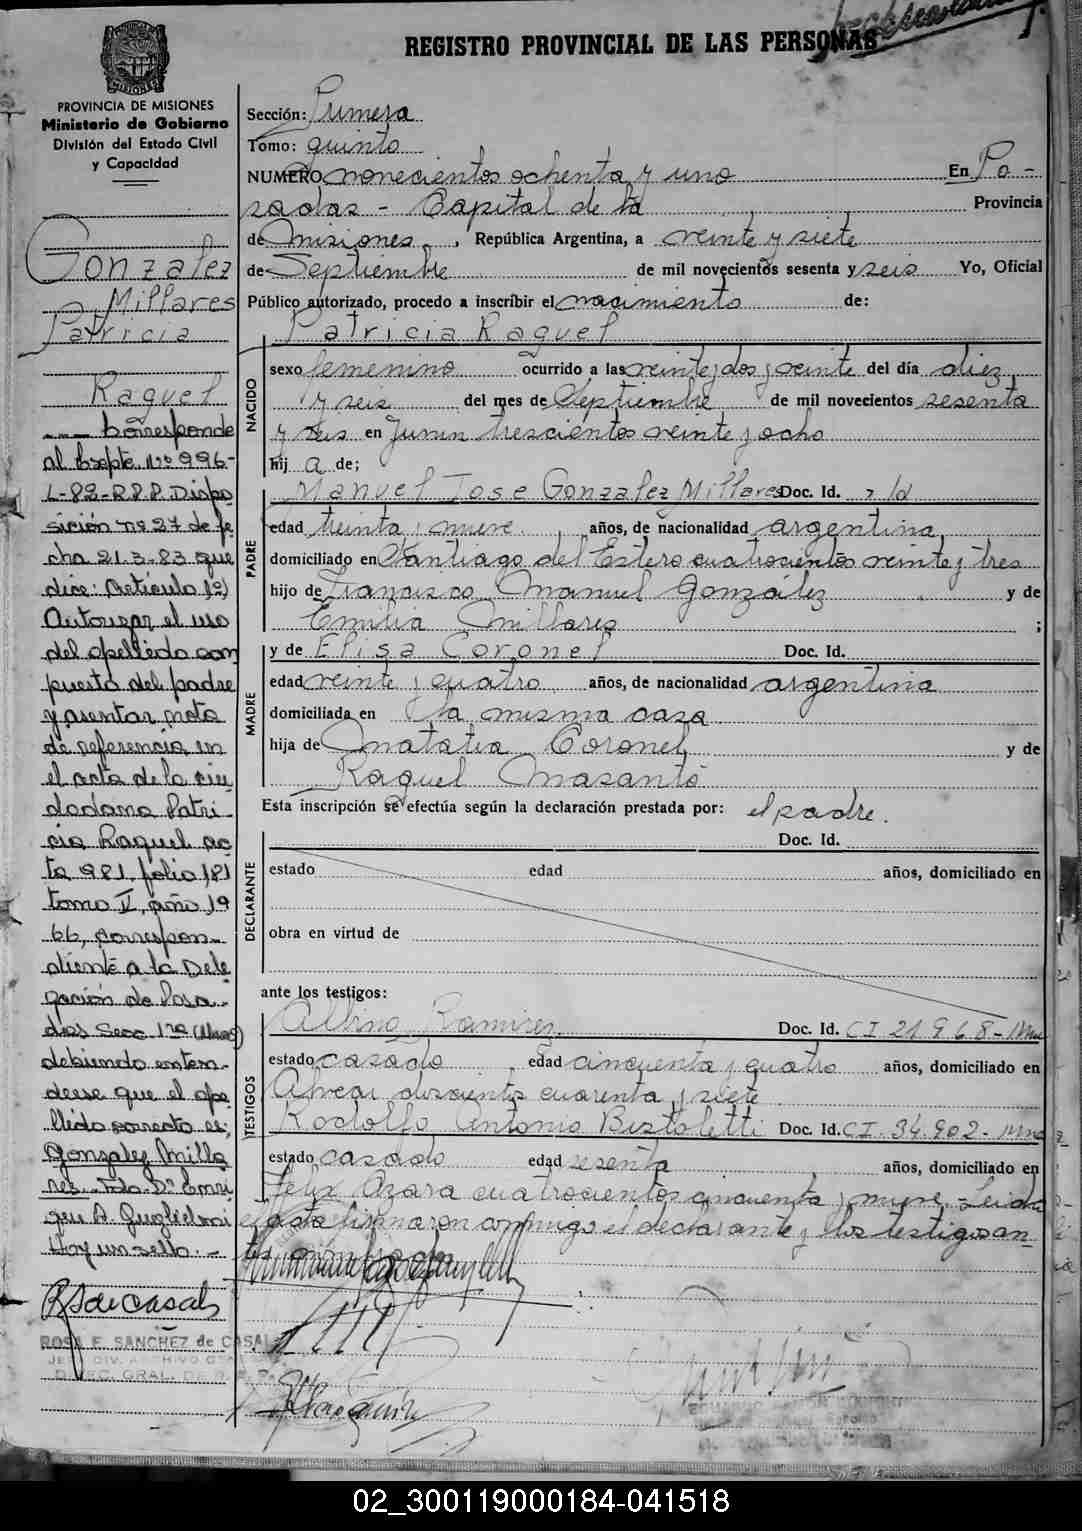 REGISTRO PROVINCIAL DE LAS PERSONAS
PROVINCIA DE MISIONES
Ministerio de Gobierno
División del Estado Civil
y Capacidad
Gonzalez
Millares
Patricia
Raquel
--- Corresponde
al Expte. Nº 996-
L-82-R.P.P. Dispo
sición nº 27 de fe
cha 21.3.83 que
dice: Artículo 1º)
Autorizar el uso
del apellido com
puesto del padre
y asentar nota
de referencia en
el acta de la ciu
dadana Patri-
cia Raquel ac
ta 981, folio 181
tomo V, año 19
66, correspon-
diente a la Dele
gación de Posa-
das Secc. 1ra (Mnes)
debiendo enten-
derse que el ape
llido correcto es:
Gonzalez Milla
res.- Fdo. Dr Enri
que A. Guglielmi
Hay un sello.-
R S de Casals
ROSA E. SANCHEZ de CASAL
JEFE DIV. ARCHIVO
DIREC. GRAL. DE
Sección: Primera
Tomo: quinto
NUMERO novecientos ochenta y uno En Po-
sadas - Capital de la Provincia
de Misiones, República Argentina, a veinte y siete
de Septiembre de mil novecientos sesenta y seis Yo, Oficial
Público autorizado, procedo a inscribir el nacimiento de:
Patricia Raquel
NACIDO
sexo femenino ocurrido a las veinte y dos y veinte del día diez
y seis del mes de Septiembre de mil novecientos sesenta
y seis en Junin trescientos veinte y ocho
hij a de;
PADRE
Manuel Jose Gonzalez Millares Doc. Id.
edad treinta y nueve años, de nacionalidad argentina
domiciliado en Santiago del Estero cuatrocientos veinte y tres
hijo de Francisco Manuel González y de
Emilia Millares ;
MADRE
y de Elisa Coronel Doc. Id.
edad veinte y cuatro años, de nacionalidad argentina
domiciliada en la misma casa
hija de Natalia Coronel y de
Raquel Masanto
Esta inscripción se efectúa según la declaración prestada por: el padre.
DECLARANTE
Doc. Id.
estado edad años, domiciliado en
obra en virtud de
ante los testigos:
TESTIGOS
Albino Ramirez Doc. Id. CI 21968-Mnes
estado casado edad cincuenta y cuatro años, domiciliado en
Alvear doscientos cuarenta y siete
Rodolfo Antonio Bistoletti Doc. Id. CI. 34.902-Mnes
estado casado edad sesenta años, domiciliado en
Felix Azara cuatrocientos cincuenta y nueve. Leida
el acta firmaron conmigo el declarante y los testigos an-
tes nombrados
02_300119000184-041518